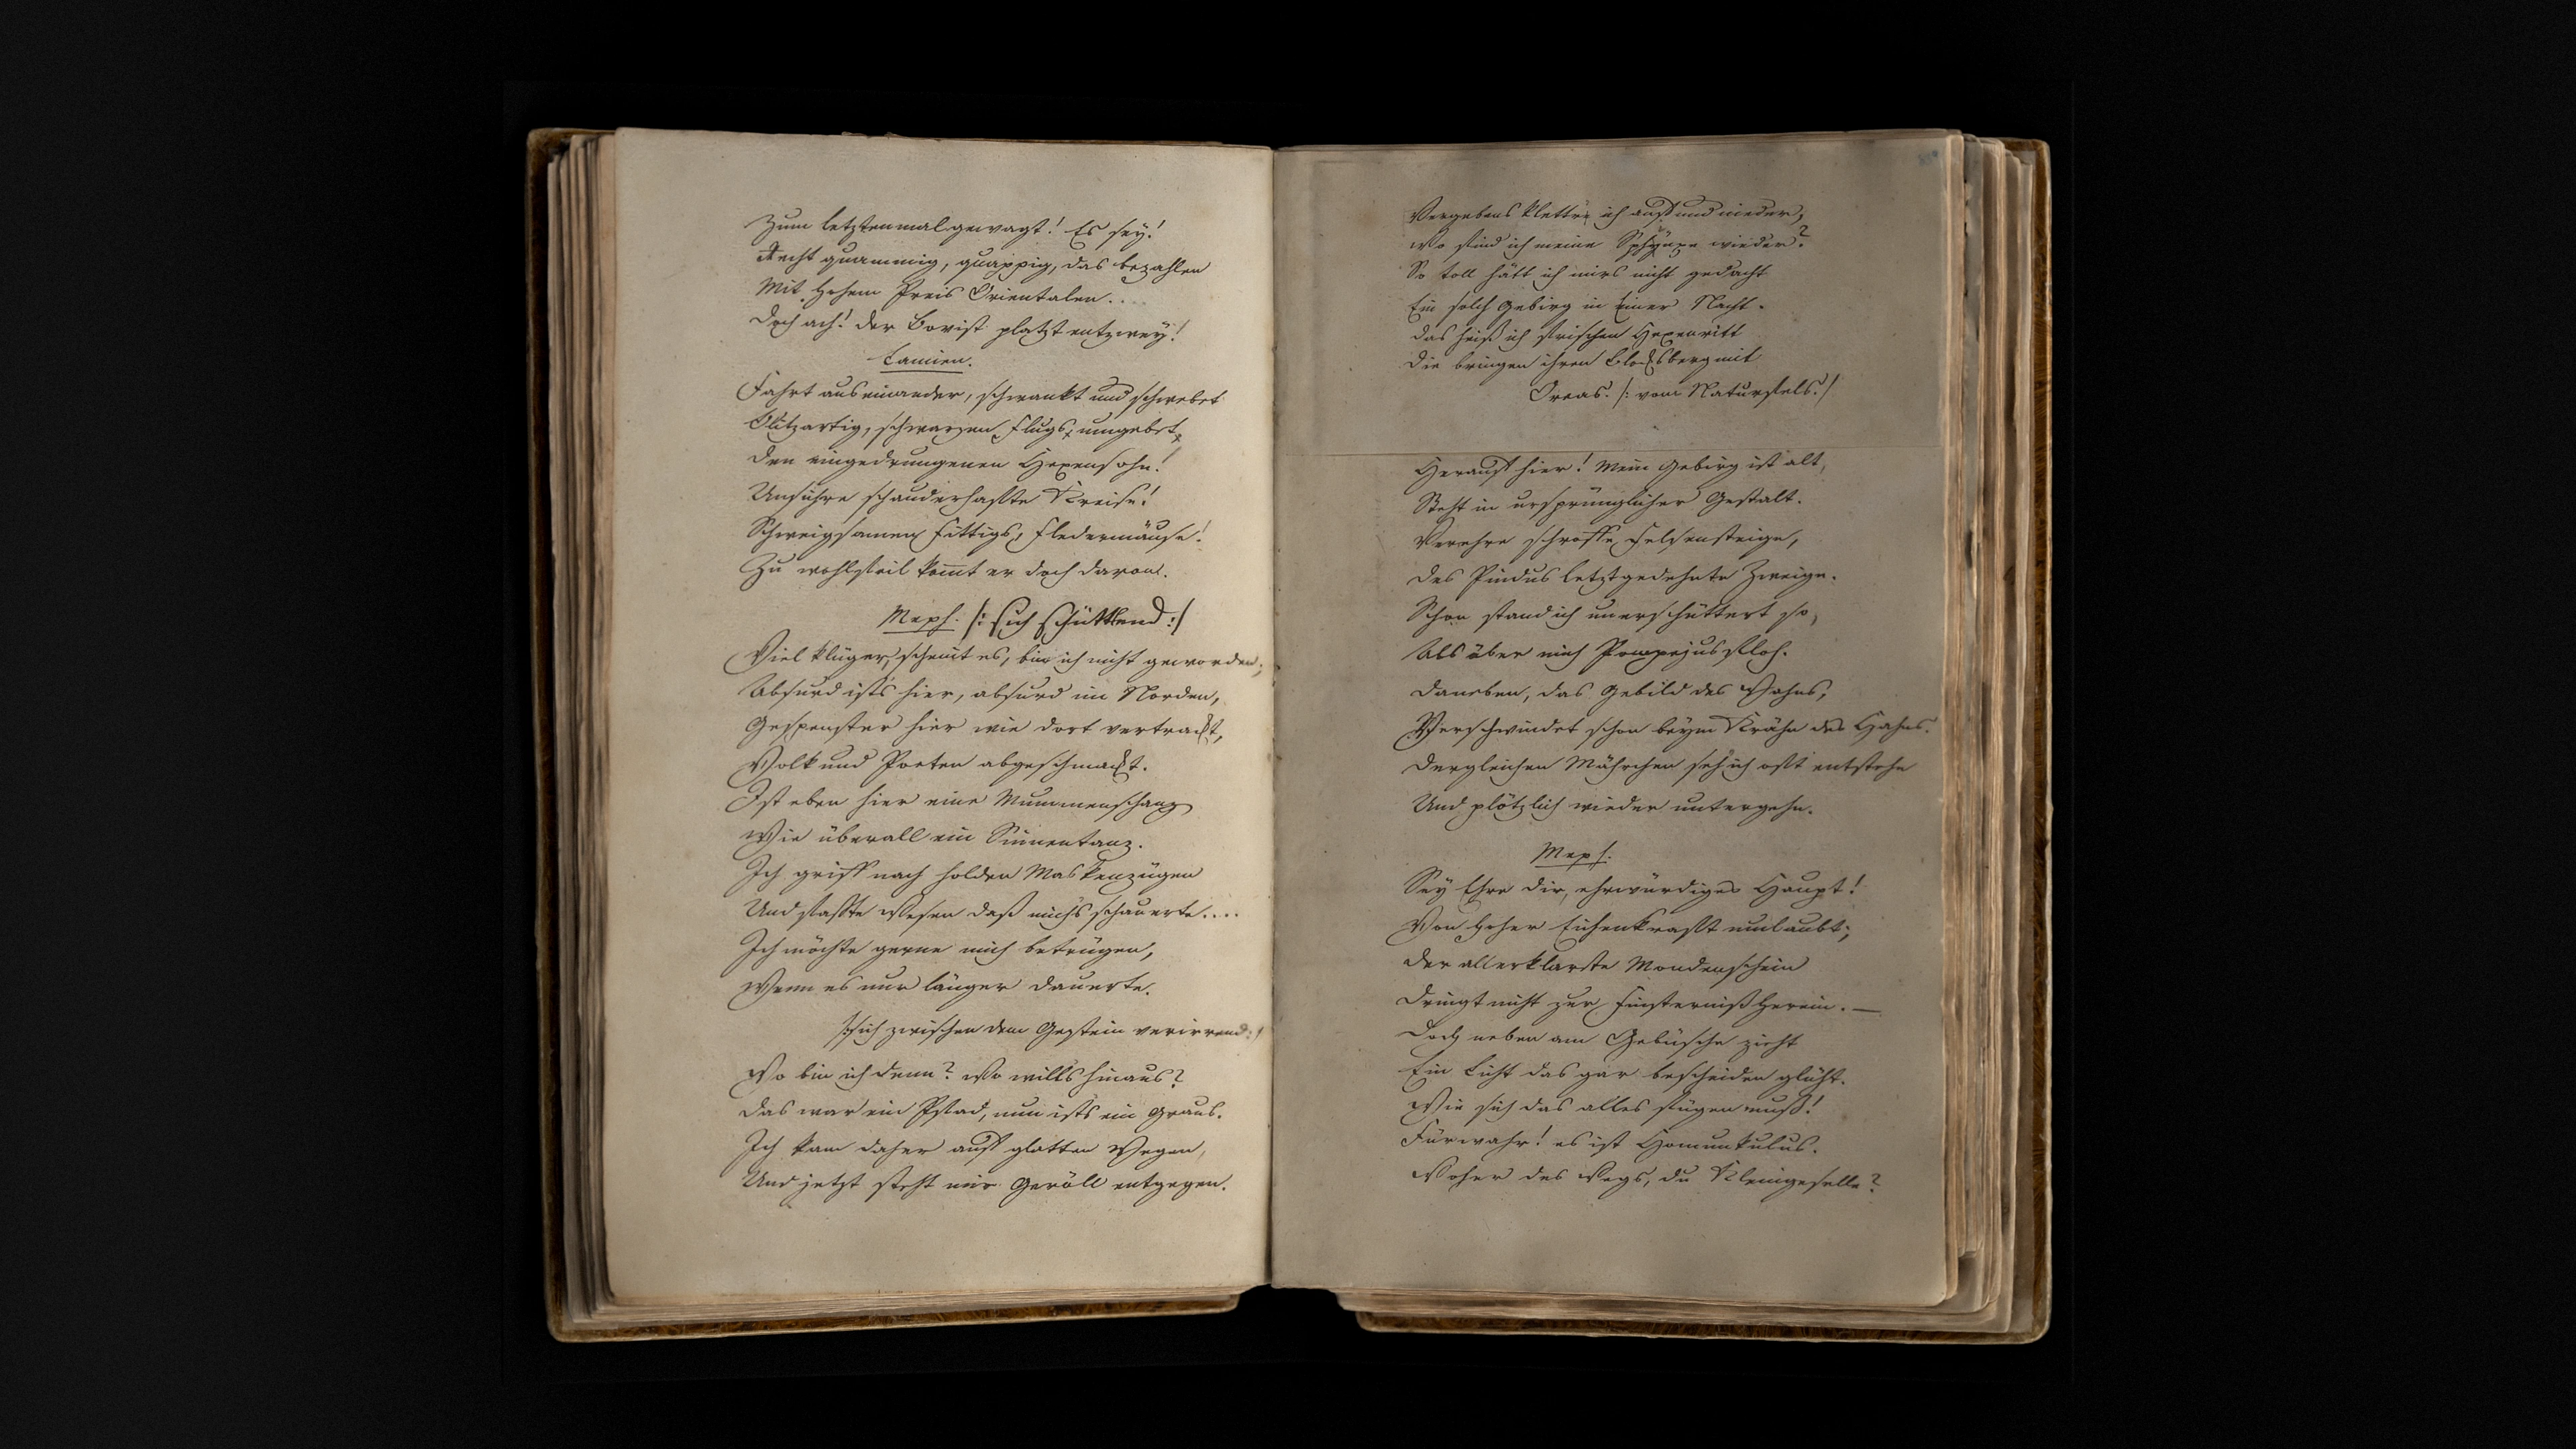 Zum letztenmal gewagt! Es sey!
Recht quammig, quappig, das bezahlen
Mit hohem Preis Orientalen...
Doch ach! der Bovist platzt entzwey!
Lamien.
Fahrt auseinander, schwankt und schwebet
Blitzartig, schwarzen Flugs, umgebet,
Den eingedrungenen Hexensohn!
Unsichre schauderhafte Kreise!
Schweigsamen Fittigs, Fledermäuse!
Zu wohlfeil kommt er doch davon.
Meph. /: sich schüttlend :/
Viel klüger, scheint es, bin ich nicht geworden;
Absurd ists hier, absurd im Norden,
Gespenster hier wie dort vertrackt,
Volk und Poeten abgeschmackt.
Ist eben hier eine Mummenschanz
Wie überall ein Sinnentanz.
Ich griff nach holden Maskenzügen
Und faßte Wesen daß mich's schauerte....
Ich möchte gerne mich betrügen,
Wenn es nur länger dauerte.
/: sich zwischen dem Gestein verirrend :/
Wo bin ich denn? Wo wills hinaus?
Das war ein Pfad, nun ists ein Graus.
Ich kam daher auf glatten Wegen,
Und jetzt steht mir Geröll entgegen.
Vergebens klettr' ich auf und nieder,
Wo find ich meine Sphynxe wieder?
So toll hätt ich mirs nicht gedacht
Ein solch Gebirg in Einer Nacht.
Das heiß ich frischen Hexenritt
Die bringen ihren Blocksberg mit
Oreas. /: vom Naturfels. /
Herauf hier! Mein Gebirg ist alt,
Steht in ursprünglicher Gestalt.
Verehre schroffe Felsensteige,
Des Pindus letztgedehnte Zweige.
Schon stand ich unerschüttert so,
Als über mich Pompejus floh.
Daneben, das Gebild des Wahns,
Verschwindet schon beym Krähn des Hahns.
Dergleichen Mährchen seh ich oft entstehn
Und plötzlich wieder untergehn.
Meph.
Sey Ehre dir, ehrwürdiges Haupt!
Von hoher Eichenkraft umlaubt;
Der allerklarste Mondenschein
Dringt nicht zur Finsterniß herein. —
Doch neben am Gebüsche zieht
Ein Licht das gar bescheiden glüht.
Wie sich das alles fügen muß!
Fürwahr! es ist Homunkulus.
Woher des Wegs, du Kleingeselle?